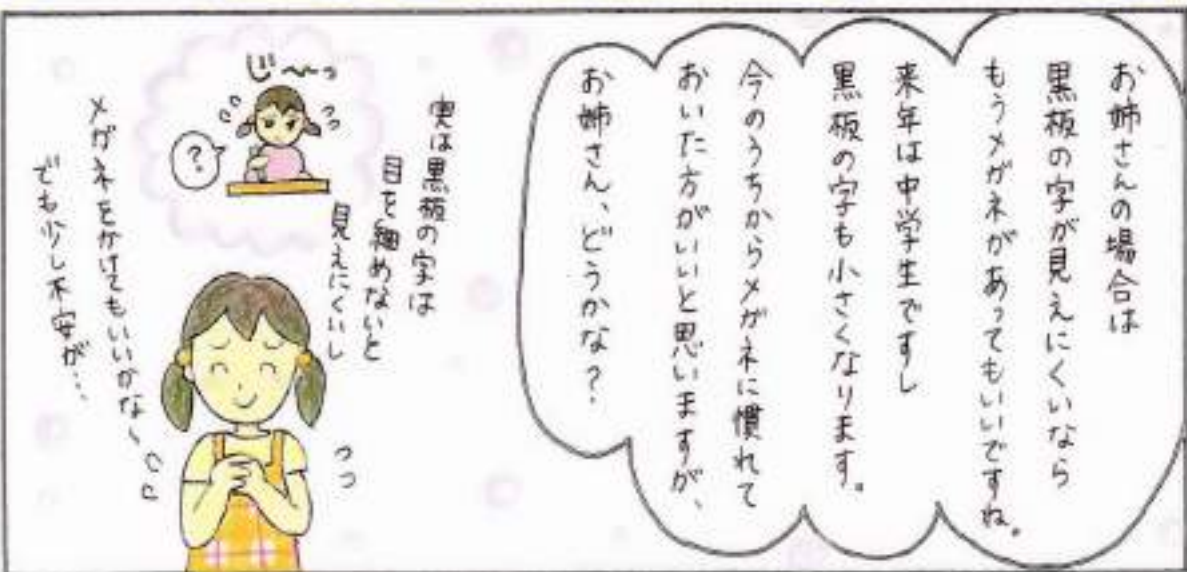 お姉さんの場合は
黒板の字が見えにくいなら
もうメガネがあってもいいですね。
来年は中学生ですし
黒板の字も小さくなります。
今のうちからメガネに慣れて
おいた方がいいと思いますが、
お姉さん、どうかな？
実は黒板の字は
目を細めないと
見えにくいし
じ〜〜っ
？
メガネをかけてもいいかな〜
でも少し不安が…